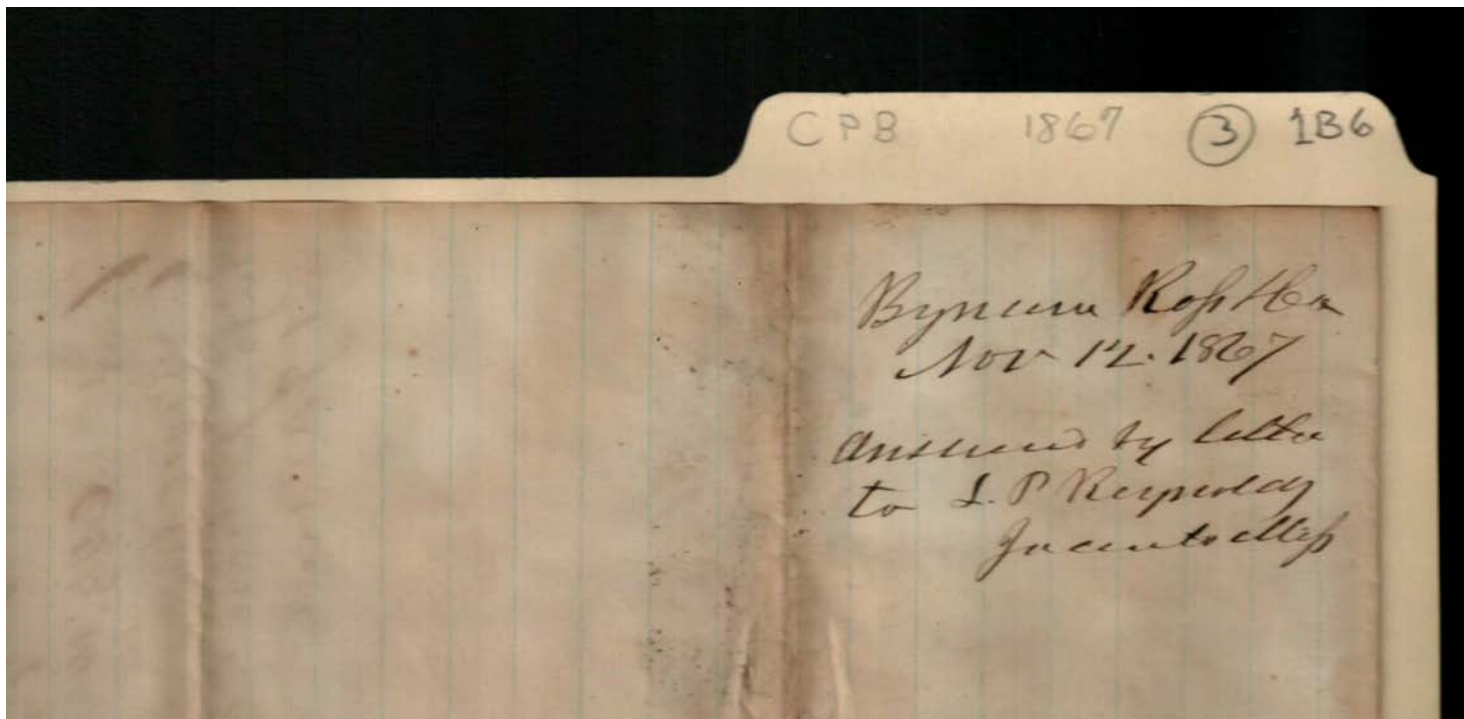 CPB 1867 3 1B6
Bynum Ross
Nov 12. 1867
Answered by letter
to L. P. Reynolds
Jacinto Miss